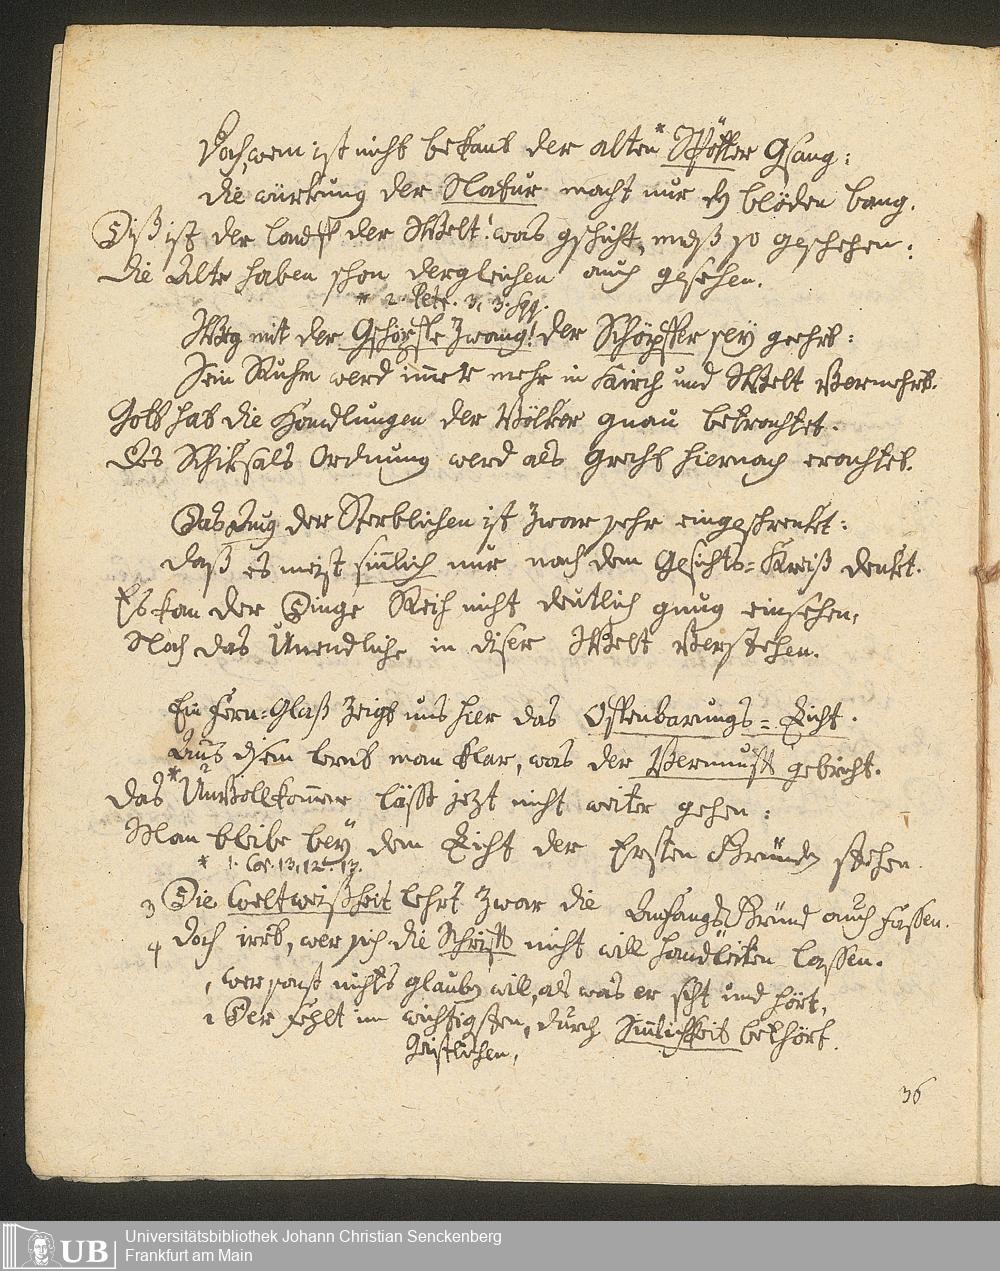 Doch, wem ist nicht bekant der alten * Spötter Gsang:
die würkung der Natur macht nur den blöden bang.
Diß ist der lauf der Welt: was gschicht, muß so geschehen:
Die Alte haben schon dergleichen auch gesehen.
* 2. Petr. 3, 3. sqq.
Weg mit der Gschöpfe Zwang! der Schöpffer sey geehrt:
Sein Ruhm werd immer mehr in Kirch und Welt Vermehrt.
Gott hat die Handlungen der Völker gnau betrachtet.
Des Schiksals Ordnung werd als Grecht hiernach erachtet.
Das Aug der Sterblichen ist zwar sehr eingeschrenket:
daß es meist sinnlich nur nach dem Gesichts=Kreiß denkt.
Es kan der Dinge Reih nicht deutlich gnug einsehen,
Noch das Unendliche in diser Welt Verstehen.
Ein Fern=Glaß zeigt uns hier das Offenbarungs=Licht.
Aus dem lernt man klar, was der Vernunft gebricht.
Das * UnVollkommene läßt jezt nicht weiter gehen:
Man bleibe bey dem Licht der Ersten Gründen stehen.
* 1. Cor. 13, 12. 13.
3 Die Weltweißheit lehrt zwar die Anfangs Gründ auch fassen.
4 Doch irrt, wer sich die Schrifft nicht will handleiten lassen.
1 wer sonst nichts glauben will, als was er siht und hört,
2 Der fehlt im wichtigsten, durch Sinnlichkeit bethört.
Geistlichen,
36
UB
Universitätsbibliothek Johann Christian Senckenberg
Frankfurt am Main